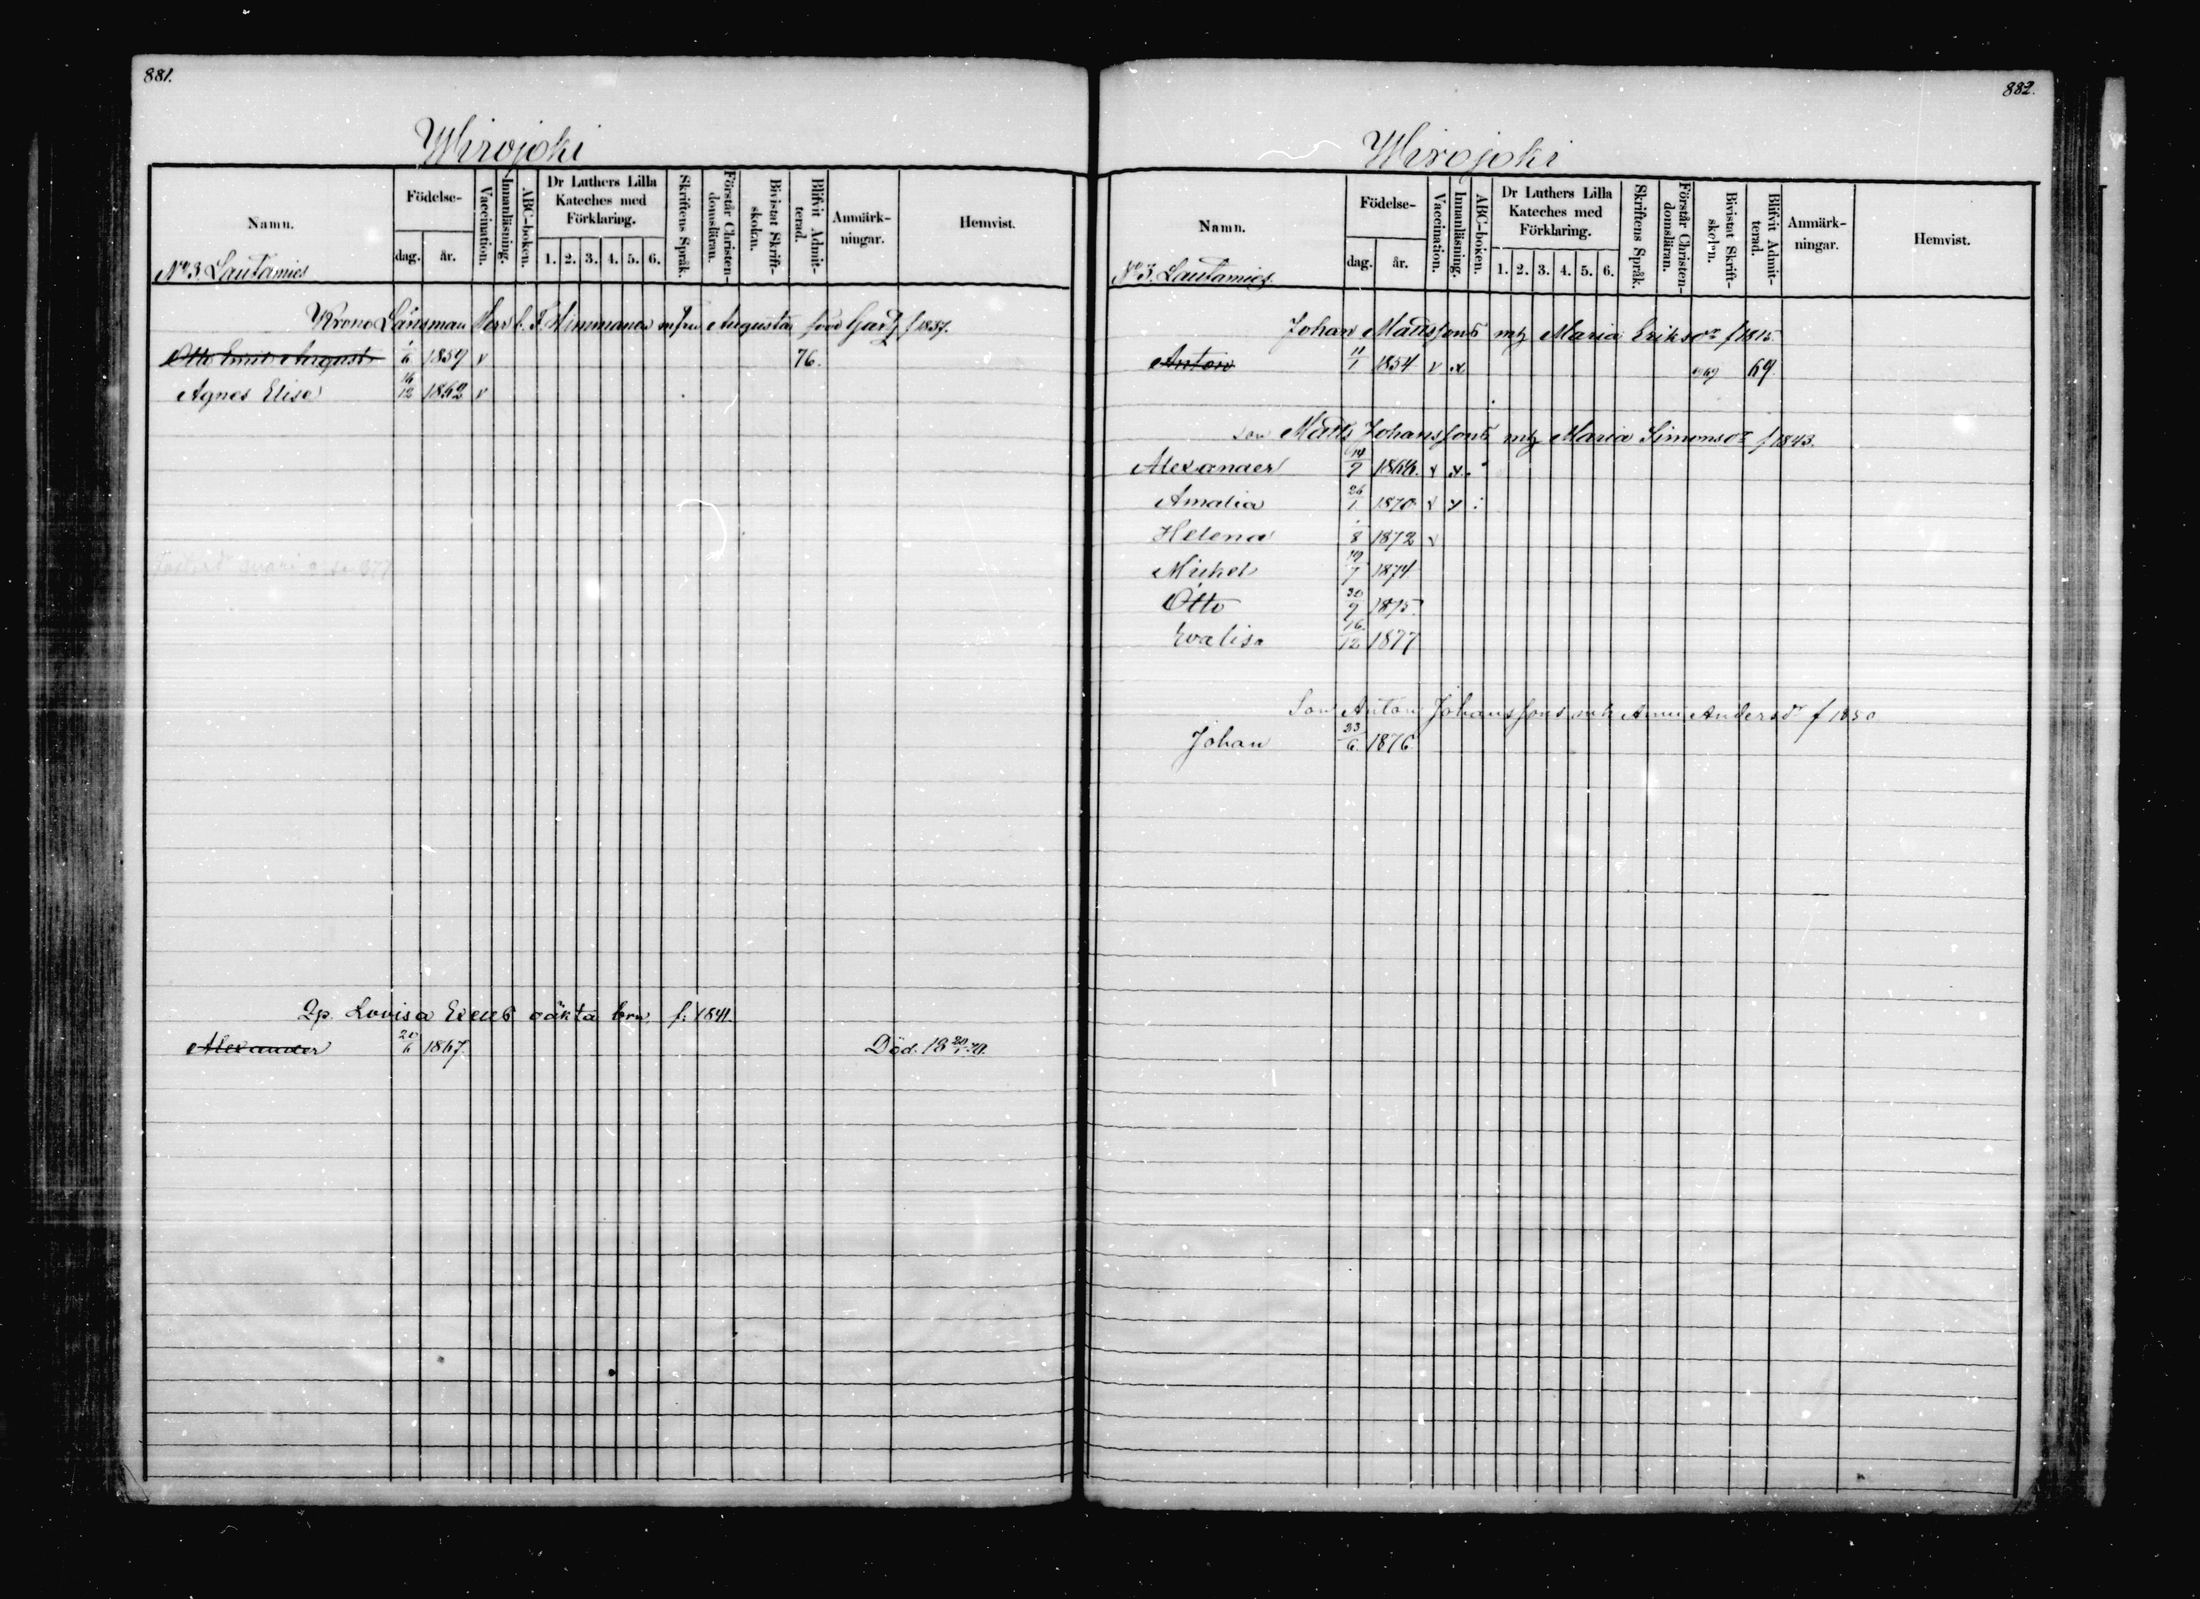 881.
Wirojoki
Namn.
Födelse-
dag. år.
Vaccination.
Innanläsning.
ABC-boken.
Dr Luthers Lilla Kateches med Förklaring.
1. 2. 3. 4. 5. 6.
Skriftens Språk.
Förstår Christen-domsläran.
Bivistat Skrift-skolan.
Blifvit Admit-terad.
Anmärk-ningar.
Hemvist.
No 3. Lautamies
Krono Länsman Herr m fru Augusta född f 1837.
Otto Emil August 1/6 1859 v 76.
Agnes Elise 16/12 1862 v
Qp. Lovisa oäkta brn. f. 1841.
Alexander 20/6 1867. Död. 18 20/1 70.
882.
Wirojoki
Namn.
Födelse-
dag. år.
Vaccination.
Innanläsning.
ABC-boken.
Dr Luthers Lilla Kateches med Förklaring.
1. 2. 3. 4. 5. 6.
Skriftens Språk.
Förstår Christen-domsläran.
Bivistat Skrift-skolan.
Blifvit Admit-terad.
Anmärk-ningar.
Hemvist.
No 3. Lautamies
Johan Mattssons m h Maria Eriksdr f 1815.
Anton 11/1 1854 v x 69.
son Matts Johanssons m h Maria Simonsdr f 1843.
Alexander 14/9 1868. v x
Amalia 26/1 1870 v x
Helena 8 1872 v
Mickel 19/7 1874
Otto 30/9 1875.
Evalisa 16/12 1877
Son Anton Johanssons m h Anna Andersdr f 1850
Johan 23/6 1876.